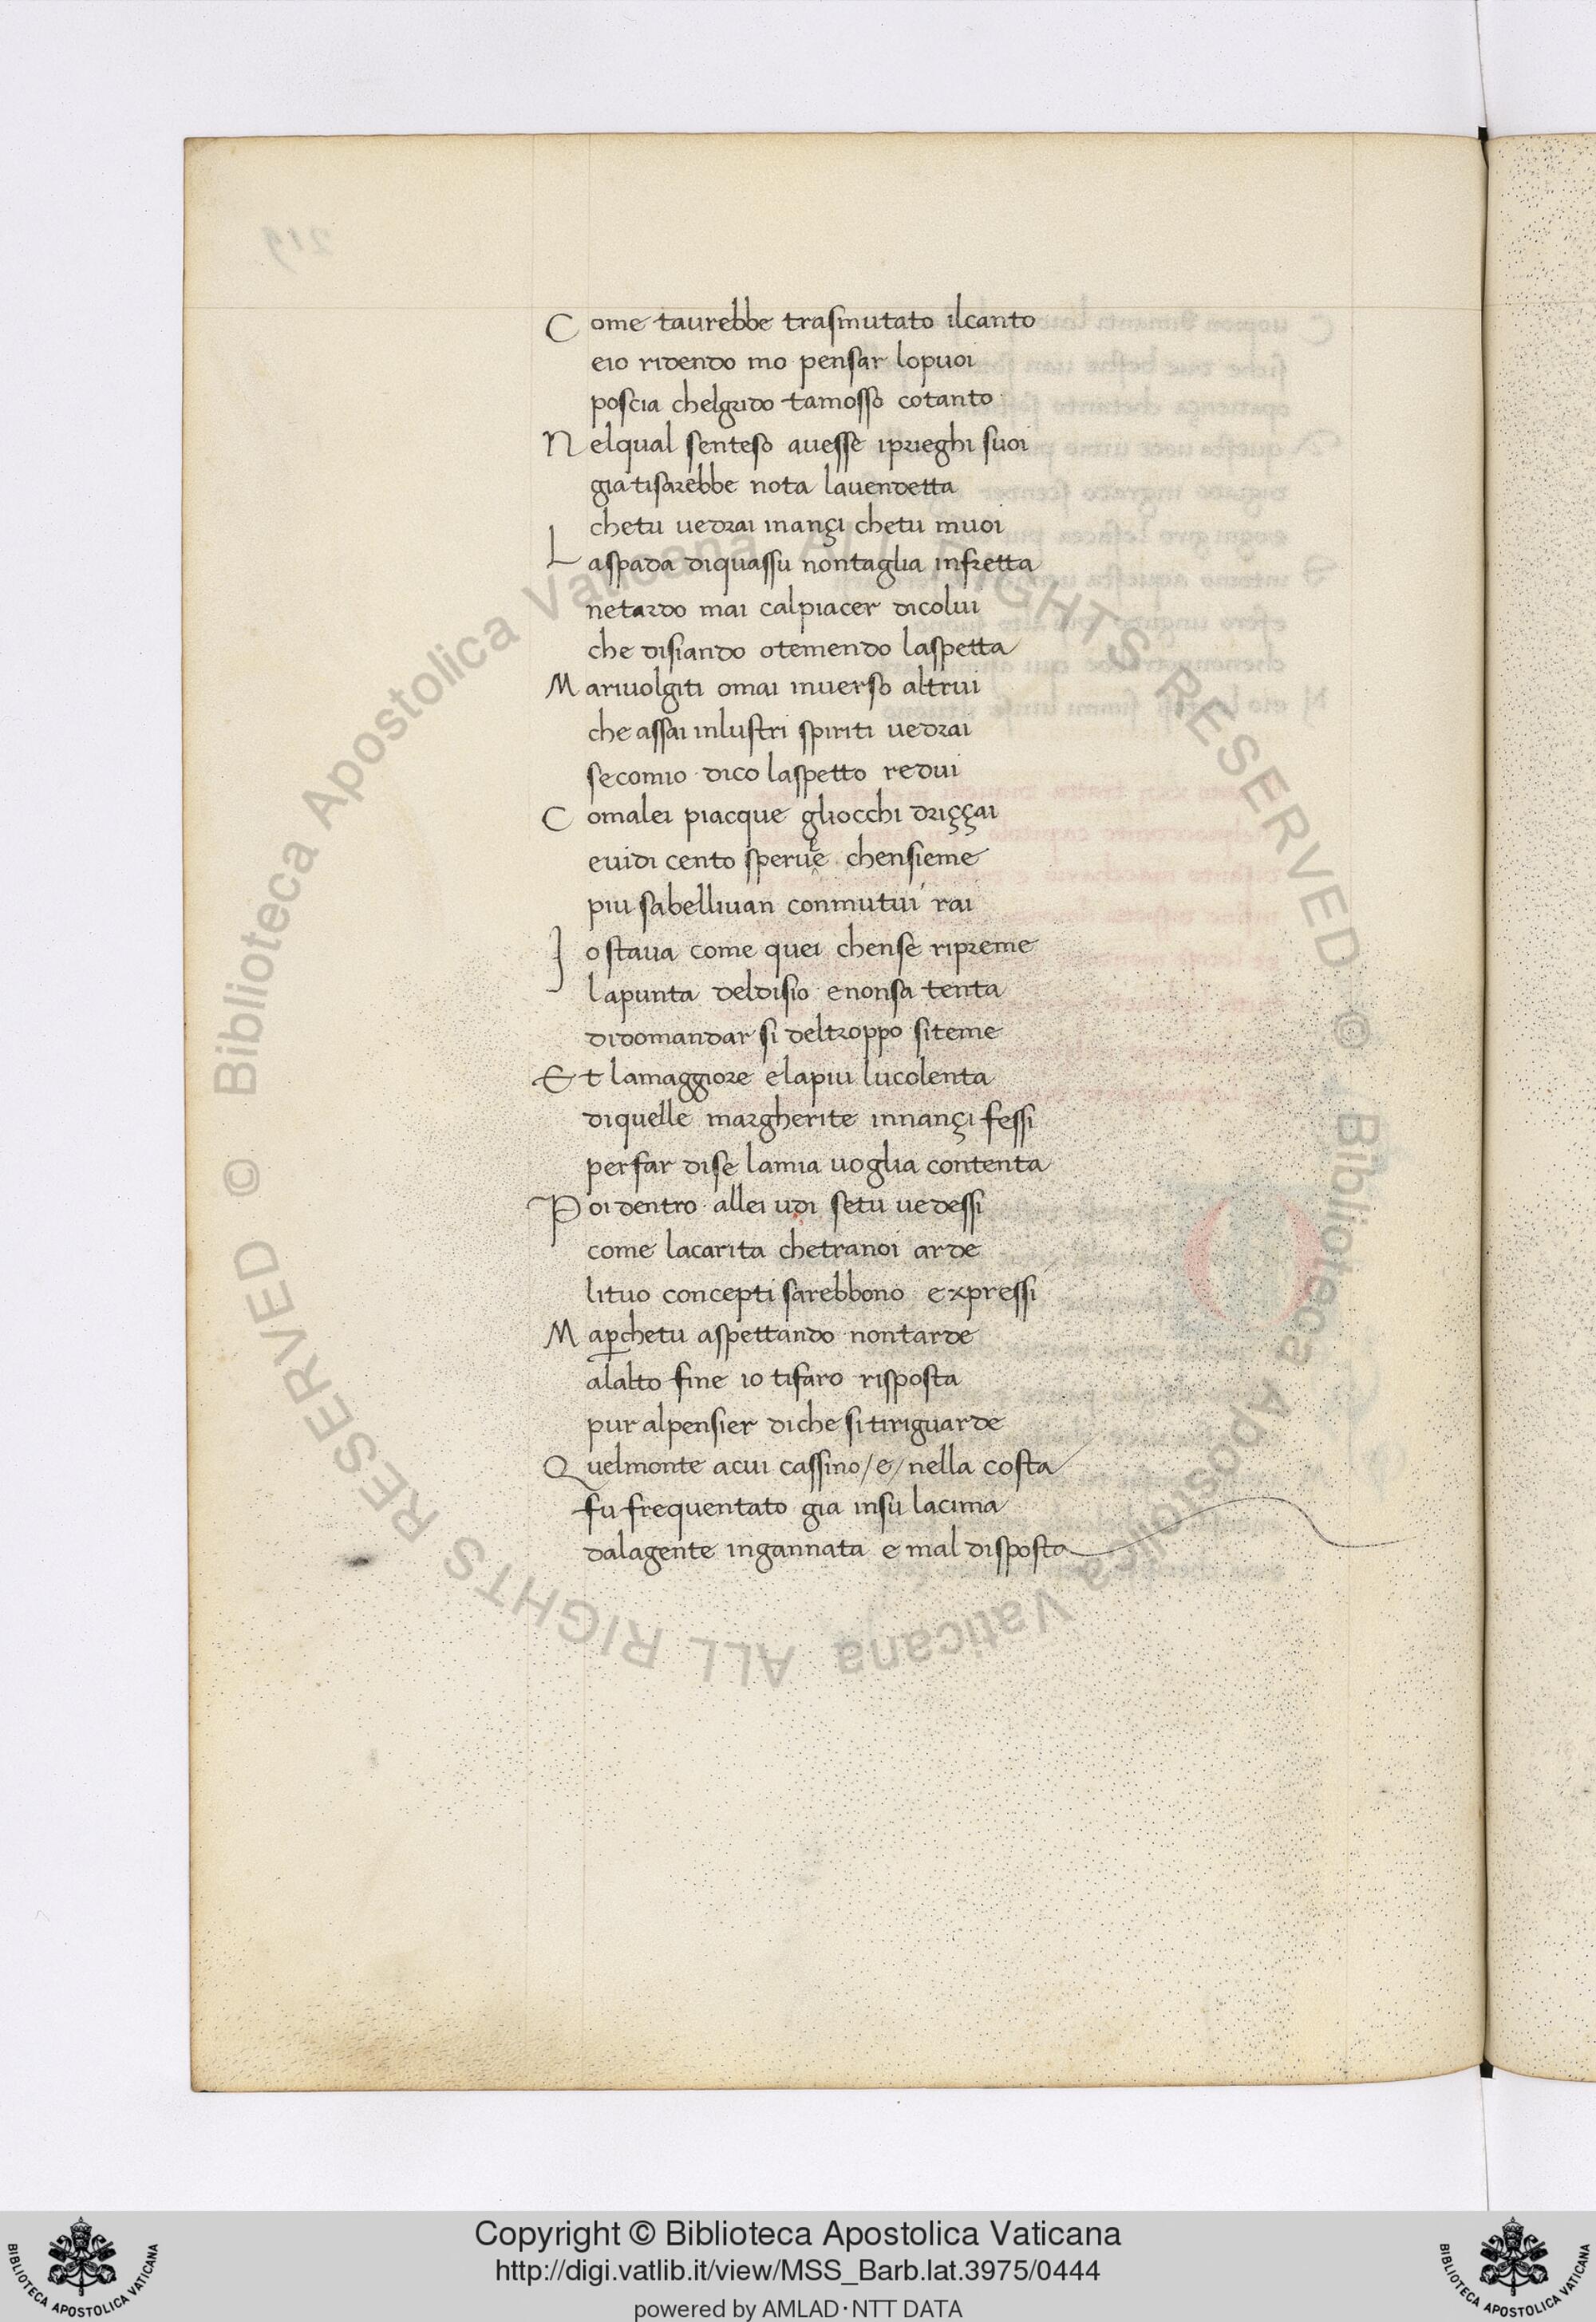 Come taurebbe trasmutato ilcanto
eio ridendo mo pensar lopuoi
poscia chelgrido tamosso cotanto
Nelqual senteso auesse iprieghi suoi
gia tisarebbe nota lauendetta
chetu uedrai inançi chetu muoi
Laspada diquassu nontaglia infretta
netardo mai calpiacer dicolui
che disiando otemendo laspetta
Mariuolgiti omai inuerso altrui
che assai inlustri spiriti uedrai
secomio dico laspetto redui
Comalei piacque gliocchi driççai
euidi cento sperule chensieme
piu sabelliuan conmutui rai
Jo staua come quei chense ripreme
lapunta deldisio enonsa tenta
didomandar si deltroppo siteme
Et lamaggiore elapiu lucolenta
diquelle margherite innançi fessi
perfar dise lamia uoglia contenta
Poi dentro allei udi setu uedessi
come lacarita chetranoi arde
lituo concepti sarebbono expressi
Maꝑchetu aspettando nontarde
alalto fine io tifaro risposta
pur alpensier diche sitiriguarde
Quelmonte acui cassino/e/nella costa
fu frequentato gia insu lacima
dalagente ingannata e mal disposta
219
© Biblioteca Apostolica Vaticana ALL RIGHTS RESERVED © Biblioteca Apostolica Vaticana ALL RIGHTS RESERVED
Copyright © Biblioteca Apostolica Vaticana
http://digi.vatlib.it/view/MSS_Barb.lat.3975/0444
powered by AMLAD·NTT DATA
BIBLIOTECA APOSTOLICA VATICANA
BIBLIOTECA APOSTOLICA VATICANA